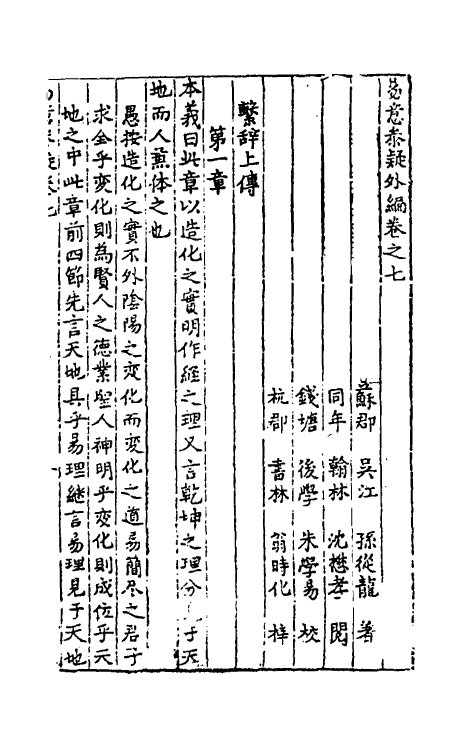 易意參疑外編卷之七
蘇郡 吳江 孫從龍 著
同年 翰林 沈懋孝 閱
錢塘 後學 朱學易 校
杭郡 書林 翁時化 梓
繫辭上傳
第一章
本義曰此章以造化之實明作經之理又言乾坤之理分于天
地而人兼体之也
愚按造化之實不外陰陽之变化而变化之道易簡尽之君子
求全乎变化則為賢人之德業聖人神明乎变化則成位乎天
地之中此章前四節先言天地具乎易理継言易理見于天地